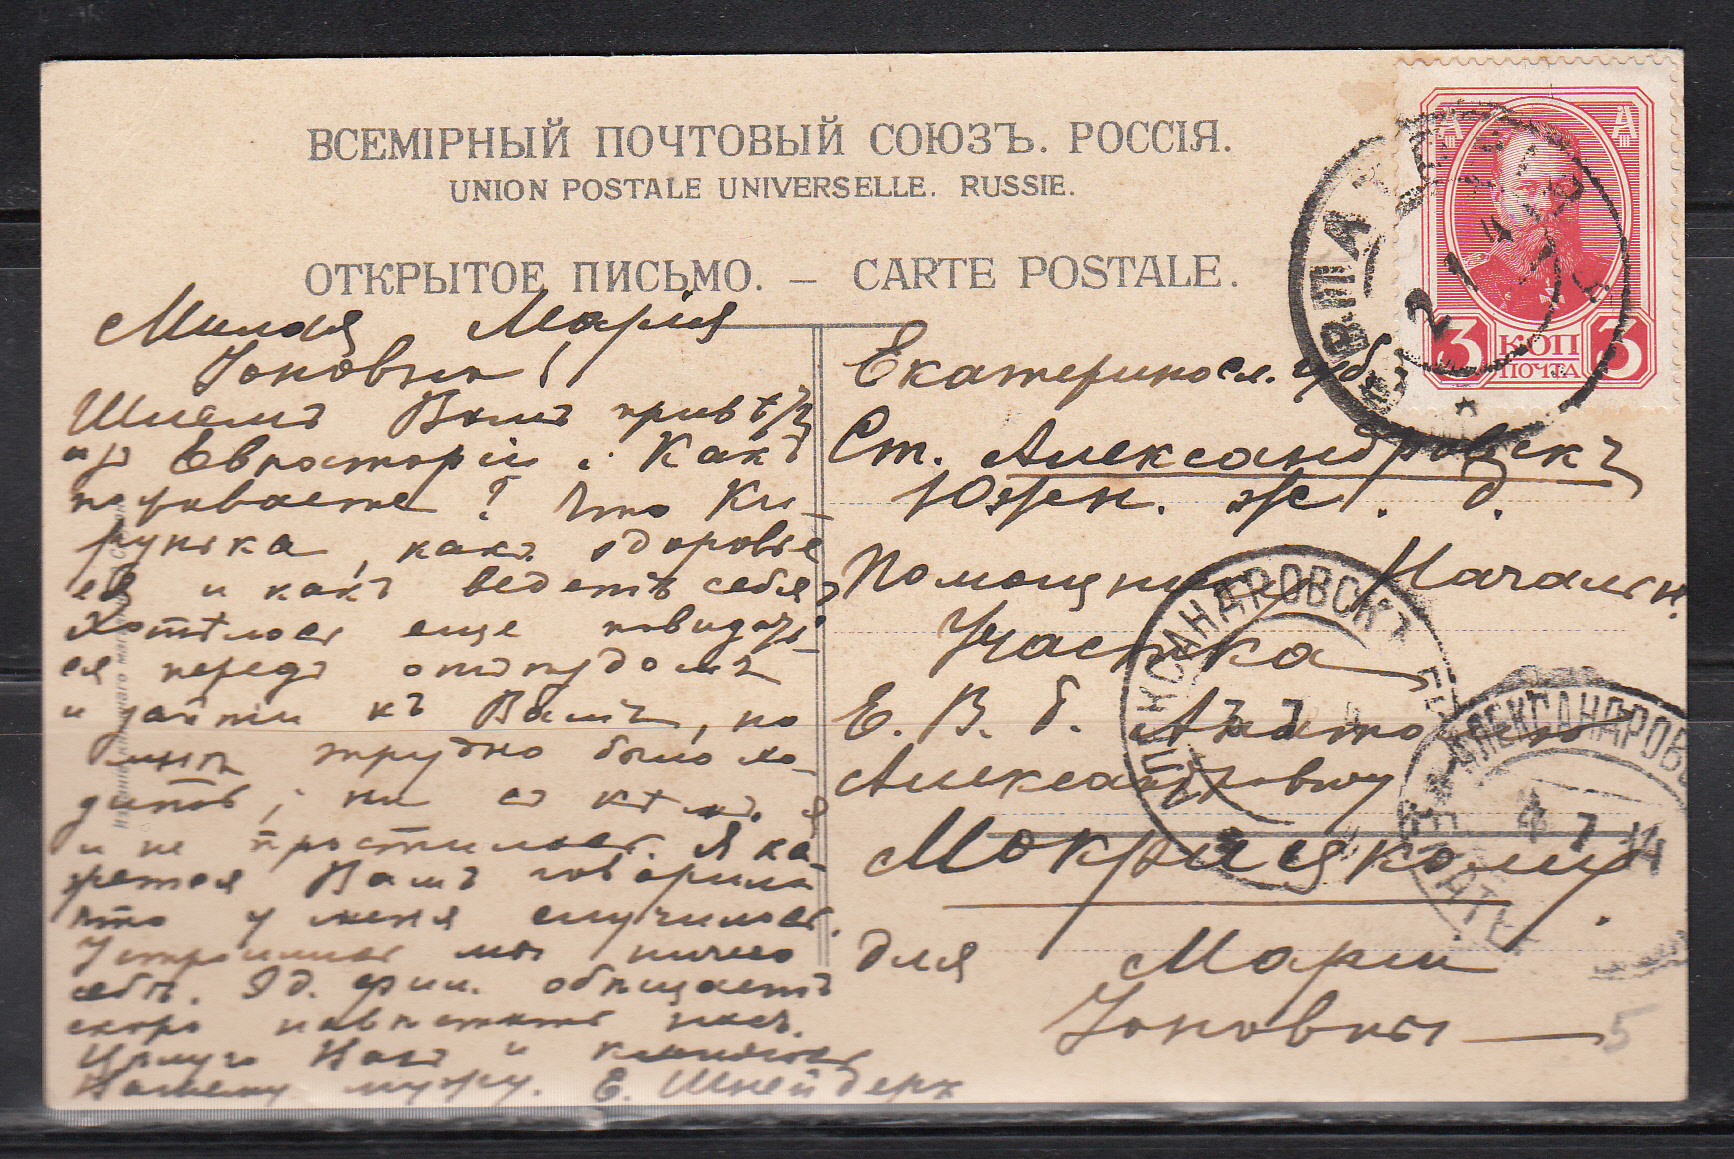 ВСЕМІРНЫЙ ПОЧТОВЫЙ СОЮЗЪ. РОССІЯ.
UNION POSTALE UNIVERSELLE. RUSSIE.
ОТКРЫТОЕ ПИСЬМО. — CARTE POSTALE.
Милая Марія
Іоновна!
Шлемъ Вамъ привѣтъ
изъ Евпаторіи. Какъ
поживаете? Что Ки-
рунька, какъ здоровье
ея и какъ ведетъ себя?
Хотѣлось еще повидать-
ся передъ отъѣздомъ
и зайти къ Вамъ, но
мнѣ трудно было хо-
дить, ни съ кѣмъ я
и не простилась. Я ка-
жется Вамъ говорила
что у меня случилось.
Устроились мы ничего
себѣ. Эд. Фил. обѣщаетъ
скоро навѣстить насъ.
Цѣлую Васъ и кланяюсь
Вашему мужу. Е. Шнейдеръ
Екатериносл. губ.
Ст. Александровскъ
Южн. ж. д.
Помощнику Начальн.
Участка
Е. В. Б. Анатолію
Александровичу
Мокрицкому.
для Маріи
Іоновны
А А
3 КОП 3
ПОЧТА
ЕВПАТ
2
АЛЕКСАНДРОВСКЪ ЕК
АЛЕКСАНДРОВС
4 7 14
5